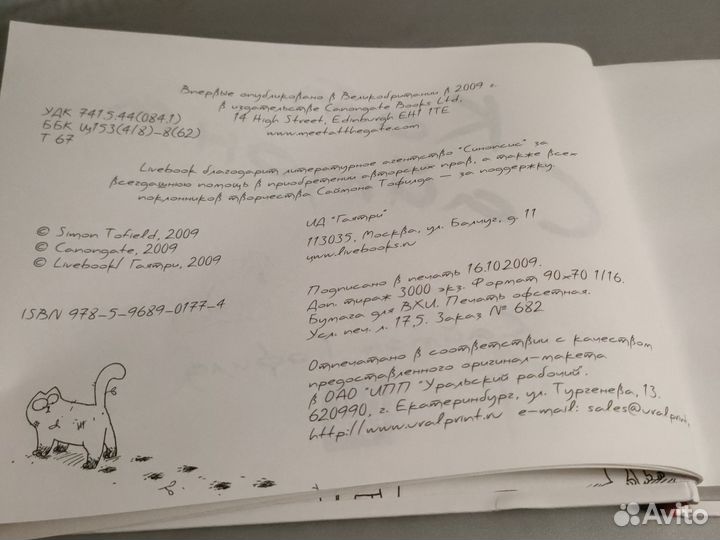 Впервые опубликовано в Великобритании в 2009 г.
в издательстве Canongate Books Ltd,
14 High Street, Edinburgh EH1 1TE
www.meetatthegate.com
УДК 741.5.44(084.1)
ББК Щ153(4/8)-8(62)
Т 67
Livebook благодарит литературное агентство "Синопсис" за
всегдашнюю помощь в приобретении авторских прав, а также всех
поклонников творчества Саймона Тофилда — за поддержку.
© Simon Tofield, 2009
© Canongate, 2009
© Livebook/ Гаятри, 2009
ИД "Гаятри"
113035, Москва, ул. Балчуг, д. 11
www.livebooks.ru
ISBN 978-5-9689-0177-4
Подписано в печать 16.10.2009.
Доп. тираж 3000 экз. Формат 90x70 1/16.
Бумага для ВХИ. Печать офсетная.
Усл. печ. л. 17,5. Заказ № 682
Отпечатано в соответствии с качеством
предоставленного оригинал-макета
в ОАО "ИПП "Уральский рабочий".
620990, г. Екатеринбург, ул. Тургенева, 13.
http://www.uralprint.ru e-mail: sales@uralprint.
Avito